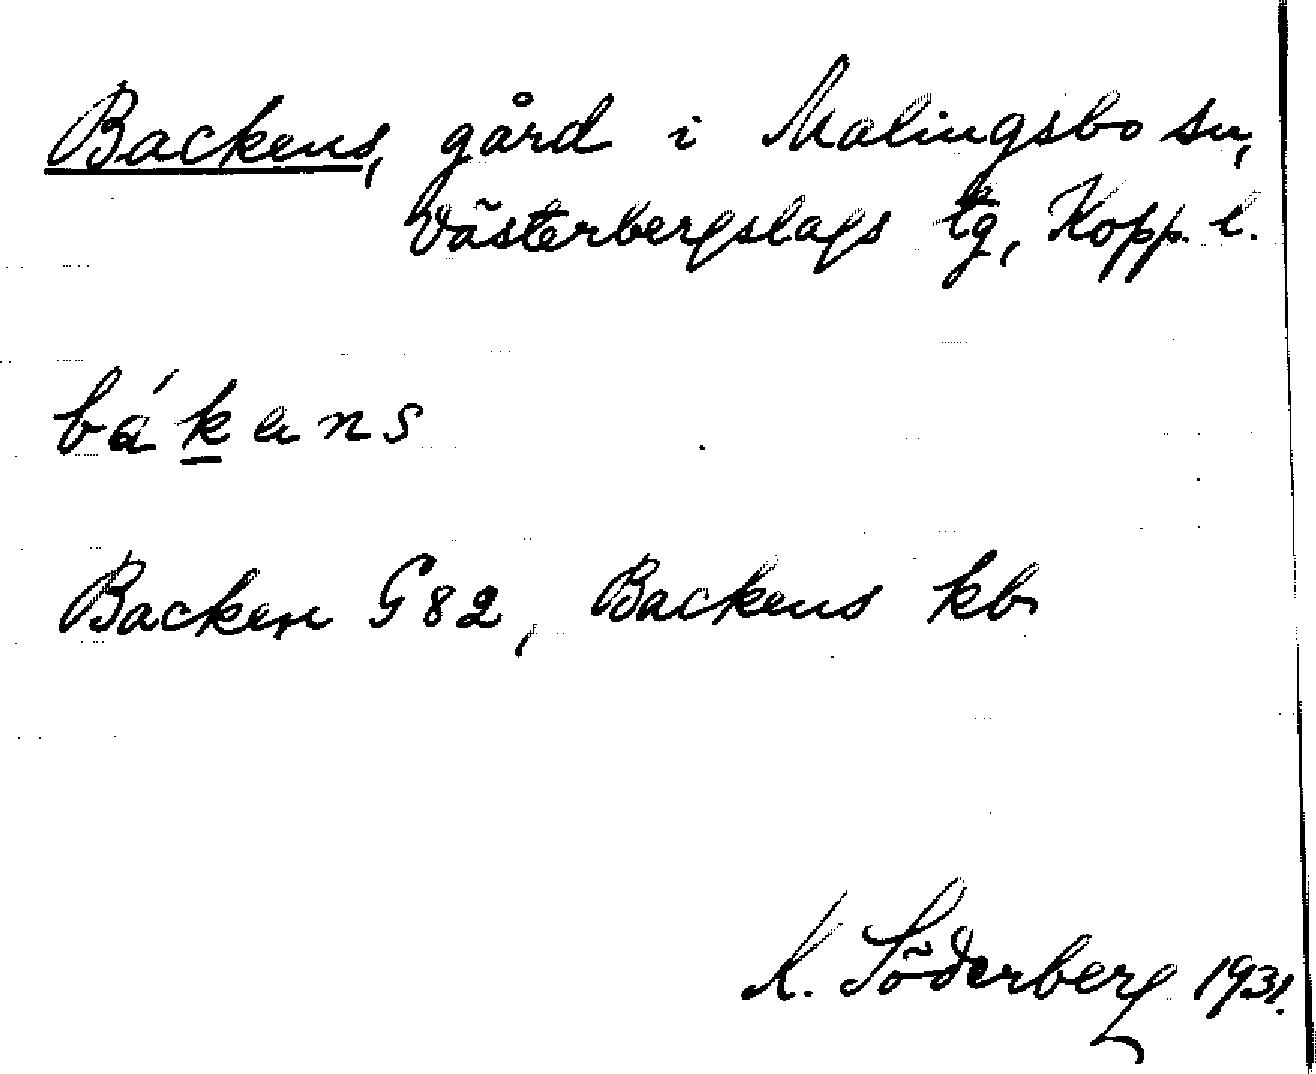 Backens, gård i Malingsbo sn,
Västerbergslags tg, Kopp. l.
bákans
Backen G 82, Backens kb
K. Söderberg 1931.